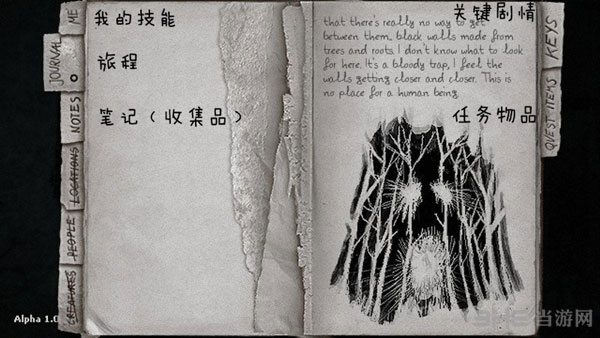 我的技能
ME
JOURNAL
旅程
NOTES
笔记（收集品）
LOCATIONS
PEOPLE
CREATURES
Alpha 1.0
关键剧情
that there's really no way to get
between them, black walls made from
trees and roots. I don't know what to look
for here. It's a bloody trap, I feel the
walls getting closer and closer. This is
no place for a human being.
KEYS
任务物品
QUEST ITEMS
当游网